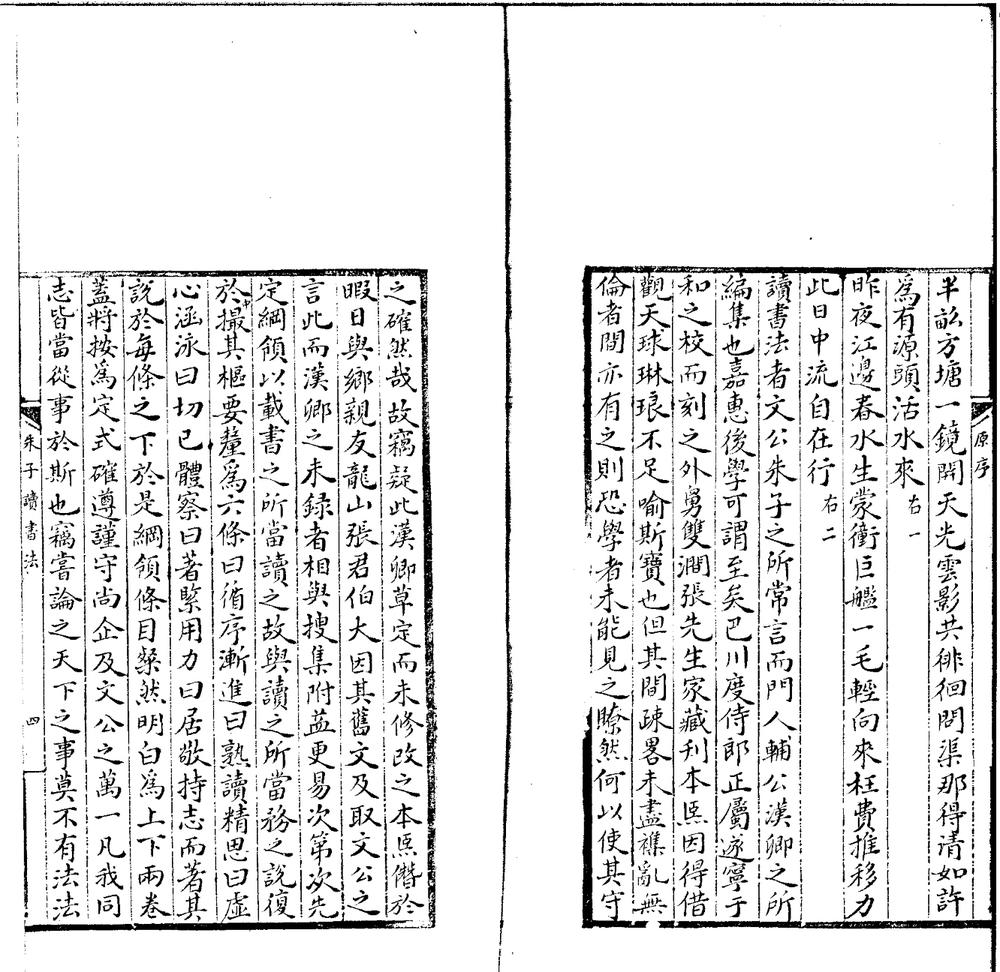 原序
半畝方塘一鏡開天光雲影共徘徊問渠那得清如許
爲有源頭活水來右一
昨夜江邊春水生蒙衝巨艦一毛輕向來枉費推移力
此日中流自在行右二
讀書法者文公朱子之所常言而門人輔公漢卿之所
編集也嘉惠後學可謂至矣巴川度侍郎正屬遂寧于
和之校而刻之外舅雙澗張先生家藏刋本熙因得借
觀天球琳琅不足喻斯寶也但其間疎畧未盡襍亂無
倫者間亦有之則恐學者未能見之瞭然何以使其守
之確然哉故竊疑此漢卿草定而未修改之本熙僭於
暇日與鄉親友龍山張君伯大因其舊文及取文公之
言此而漢卿之未録者相與搜集附益更易次第次先
定綱領以載書之所當讀之故與讀之所當務之說復
於中撮其樞要釐爲六條曰循序漸進曰熟讀精思曰虛
心涵泳曰切己體察曰著緊用力曰居敬持志而著其
說於每條之下於是綱領條目粲然明白爲上下兩卷
蓋將按爲定式確遵謹守尚企及文公之萬一凡我同
志皆當從事於斯也竊嘗論之天下之事莫不有法法
朱子讀書法
四